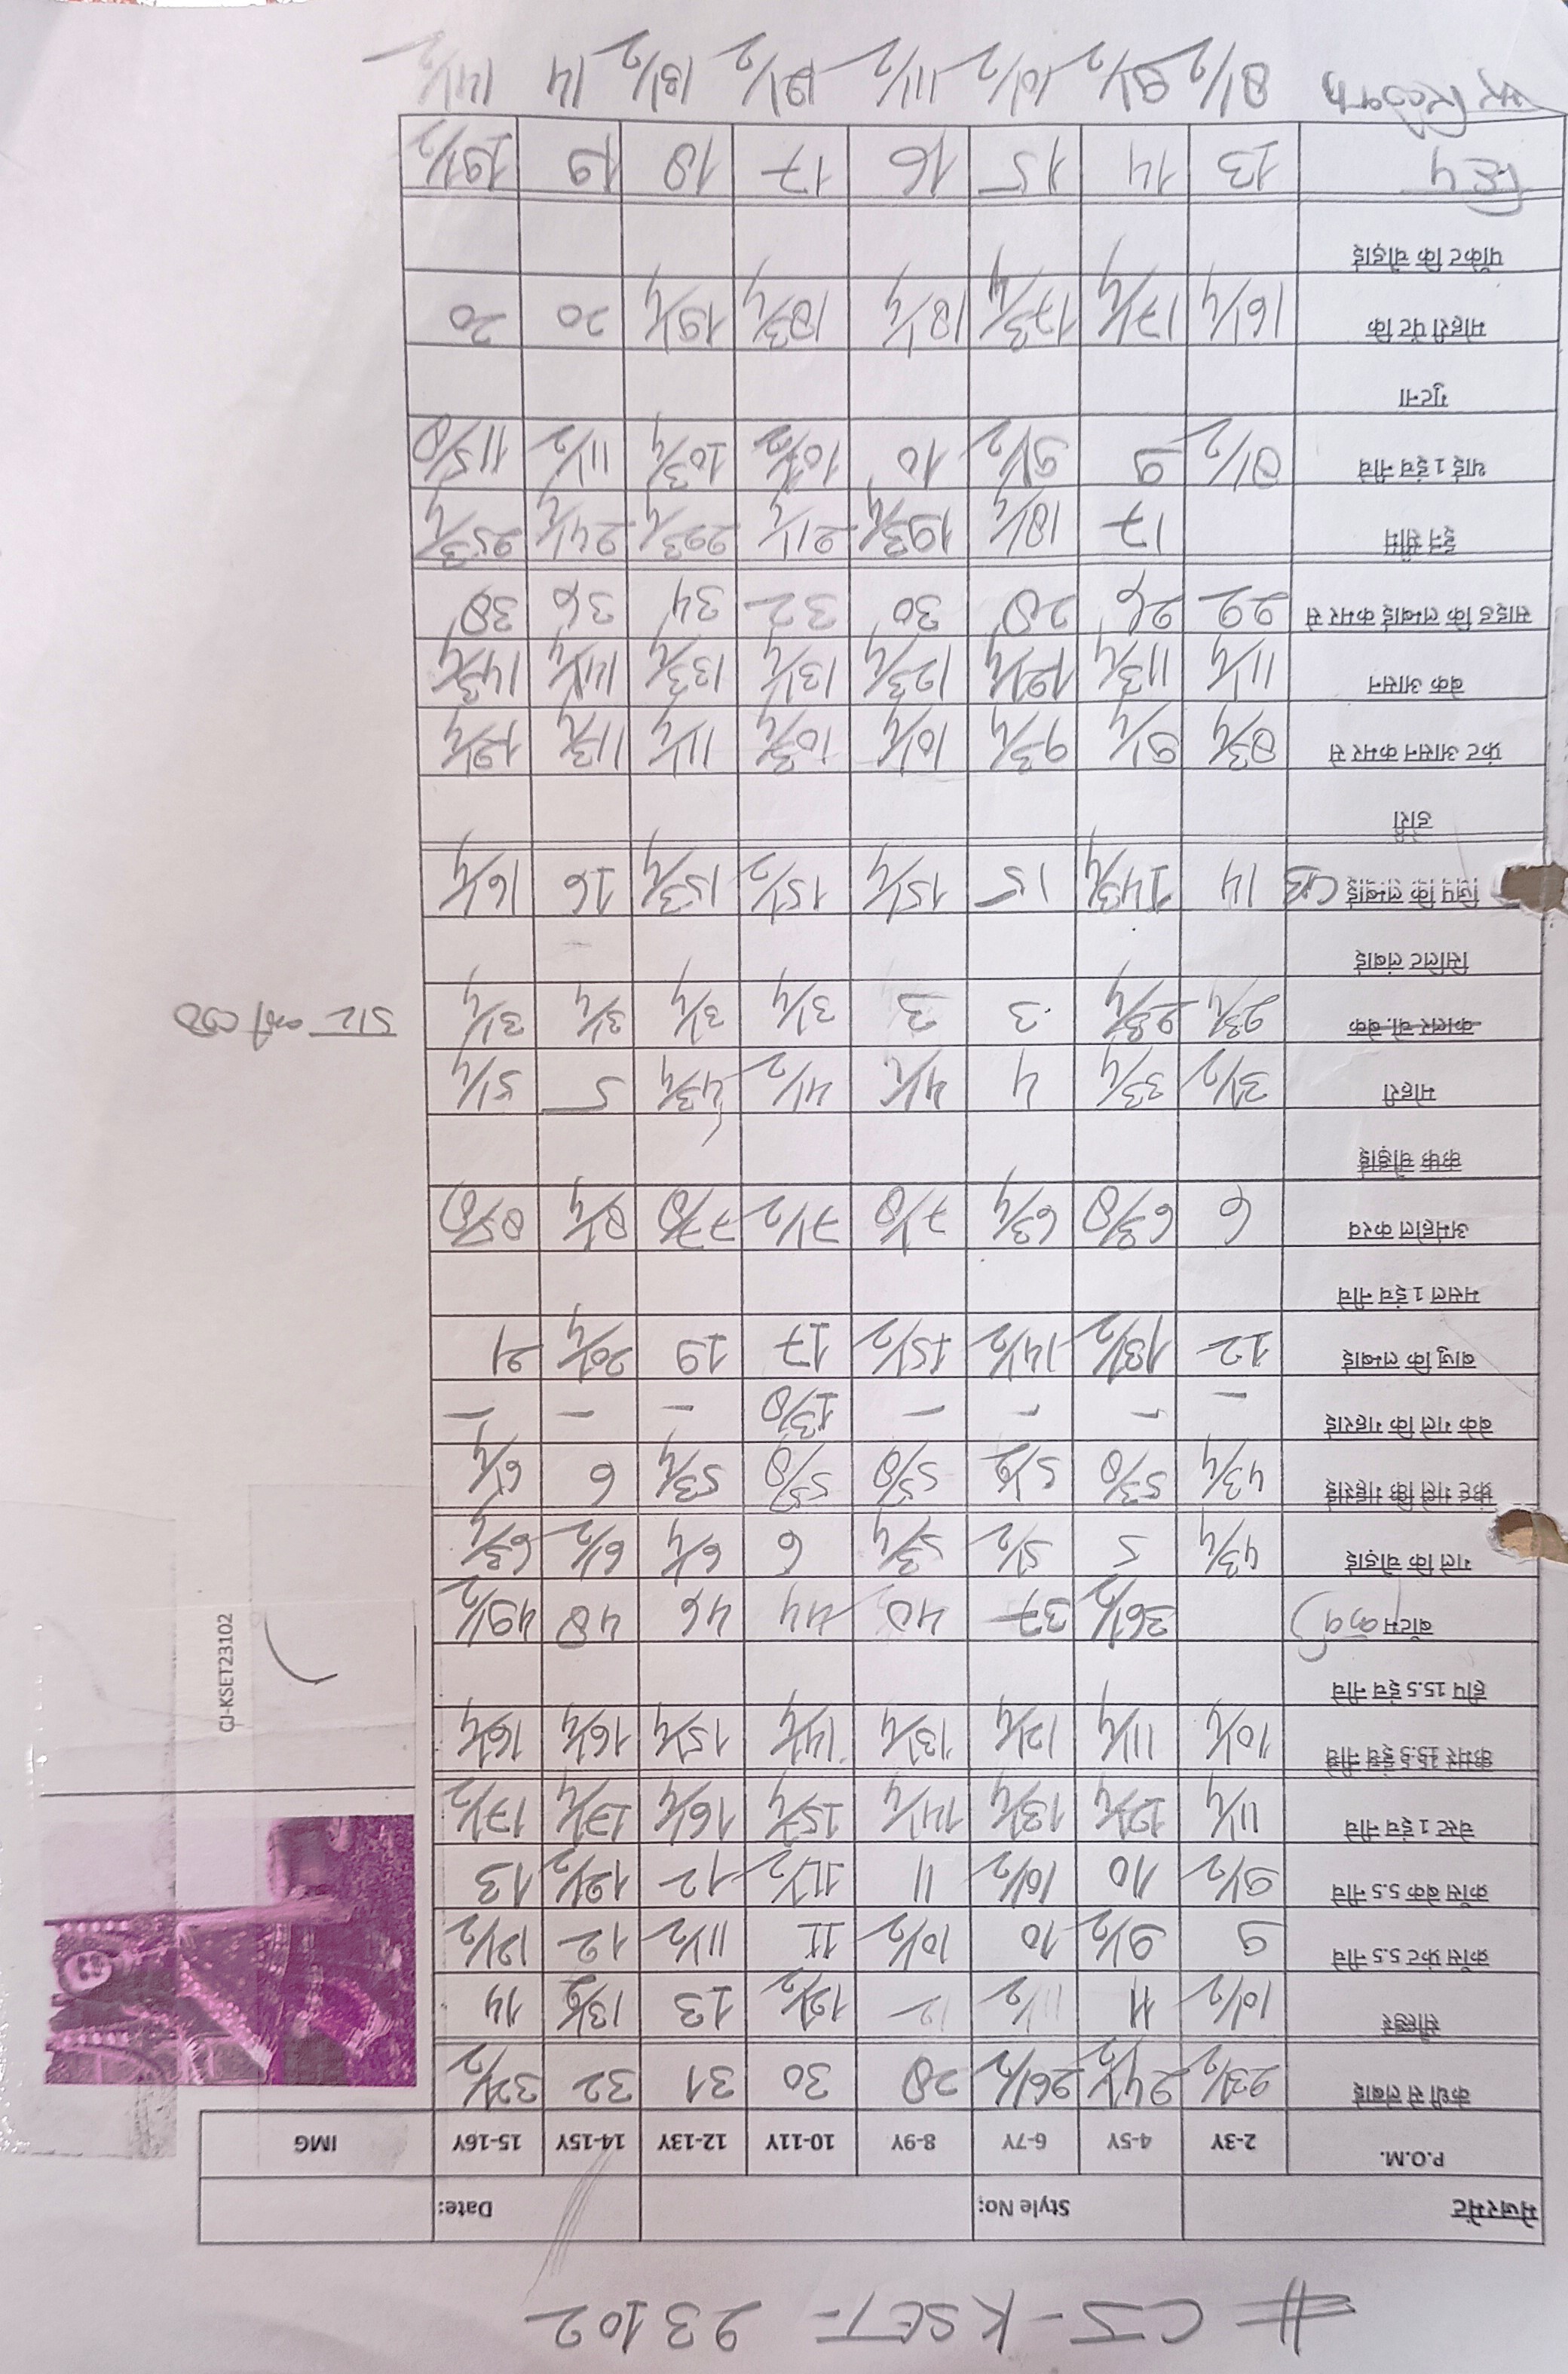 # CJ-KSET-23102
मेजरमेंट Style No: Date:
P.O.M. 2-3Y 4-5Y 6-7Y 8-9Y 10-11Y 12-13Y 14-15Y 15-16Y IMG
कंधी से लंबाई 23½ 24½ 26½ 28 30 31 32 32½
सोल्डर 10½ 11 11½ 12 12½ 13 13½ 14
क्रॉस फ्रंट 5.5 नीचे 9 9½ 10 10½ 11 11½ 12 12½
क्रॉस बेक 5.5 नीचे 9½ 10 10½ 11 11½ 12 12½ 13
चेस्ट 1 इंच नीचे 11¼ 12¼ 13¼ 14¼ 15¼ 16¼ 17¼ 17½
कमर 13.5 इंच नीचे 10¼ 11¼ 12¼ 13¼ 14¼ 15¼ 16¼ 16¼
हीप 15.5 इंच नीचे
बॉटम 36½ 37 40 44 46 48 49½
CJ-KSET23102
गले कि चोड़ाई 4¾ 5 5½ 5¾ 6 6¼ 6½ 6¾
फ्रंट गले कि गहराई 4¾ 5⅜ 5½ 5⅝ 5⅝ 5¾ 6 6¼
बेक गले कि गहराई - - - - 1⅜ - - -
बाजु कि लम्बाई 12 13½ 14½ 15½ 17 19 20¼ 21
मसल 1 इंच नीचे
अमेहोल करव 6 6⅜ 6¾ 7⅛ 7½ 7⅞ 8¼ 8⅝
कफ चोड़ाई
मोहरी 3½ 3¾ 4 4¼ 4½ 4¾ 5 5¼
कालर चो. बेक 2¾ 2¾ 3 3 3¼ 3¼ 3¼ 3¼
सिलिट लंबाई
जिप कि लम्बाई CB 14 14¾ 15 15¼ 15½ 15¾ 16 16¼
डोरी
फ्रंट आसन कमर से 8¾ 9¼ 9¾ 10¼ 10¾ 11¼ 11¾ 12¼
बेक आसन 11¼ 11¾ 12¼ 12¾ 13¼ 13¾ 14¼ 14¾
साइड कि लम्बाई कमर से 22 26 28 30 32 34 36 38
इन सीम 17 18¼ 19¾ 21¼ 22¾ 24¼ 25¾
थाई 1 इंच नीचे 8½ 9 9½ 10 10½ 10¾ 11½ 11⅝
गुटना
मोहरी पेंट कि 16¼ 17¼ 17¾ 18¼ 18¾ 19¼ 20 20
पॉकेट कि चोड़ाई
हिप 13 14 15 16 17 18 19 19½
8½ 9½ 10½ 11½ 12½ 13½ 14 14½